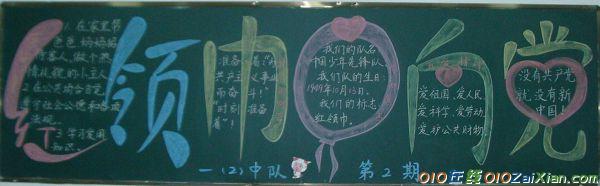 红领巾心向党
1. 在家里帮
爸爸妈妈做
2. 在公共场合自觉
遵守社会公德和各项
法规。
3. 学习爱国
知识。
准备着:“为
共产主义事业
而奋斗!”
“时刻准备
着”!
我们的队名
中国少年先锋队
我们队的生日:
1949年10月13日。
我们的标志:
红领巾。
爱祖国、爱人民
爱科学、爱劳动、
爱护公共财物。
没有共产党
就没有新
中国!
一(2)中队
第2期
010在线 010ZaiXian.com